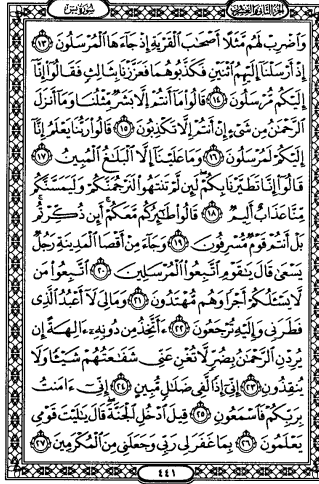 الجزء الثاني والعشرون سورة يس
وَاضْرِبْ لَهُم مَّثَلًا أَصْحَابَ الْقَرْيَةِ إِذْ جَاءَهَا الْمُرْسَلُونَ ١٣
إِذْ أَرْسَلْنَا إِلَيْهِمُ اثْنَيْنِ فَكَذَّبُوهُمَا فَعَزَّزْنَا بِثَالِثٍ فَقَالُوا إِنَّا
إِلَيْكُم مُّرْسَلُونَ ١٤ قَالُوا مَا أَنتُمْ إِلَّا بَشَرٌ مِّثْلُنَا وَمَا أَنزَلَ
الرَّحْمَٰنُ مِن شَيْءٍ إِنْ أَنتُمْ إِلَّا تَكْذِبُونَ ١٥ قَالُوا رَبُّنَا يَعْلَمُ إِنَّا
إِلَيْكُمْ لَمُرْسَلُونَ ١٦ وَمَا عَلَيْنَا إِلَّا الْبَلَاغُ الْمُبِينُ ١٧
قَالُوا إِنَّا تَطَيَّرْنَا بِكُمْ لَئِن لَّمْ تَنتَهُوا لَنَرْجُمَنَّكُمْ وَلَيَمَسَّنَّكُم
مِّنَّا عَذَابٌ أَلِيمٌ ١٨ قَالُوا طَائِرُكُم مَّعَكُمْ أَئِن ذُكِّرْتُم
بَلْ أَنتُمْ قَوْمٌ مُّسْرِفُونَ ١٩ وَجَاءَ مِنْ أَقْصَا الْمَدِينَةِ رَجُلٌ
يَسْعَىٰ قَالَ يَا قَوْمِ اتَّبِعُوا الْمُرْسَلِينَ ٢٠ اتَّبِعُوا مَن
لَّا يَسْأَلُكُمْ أَجْرًا وَهُم مُّهْتَدُونَ ٢١ وَمَا لِيَ لَا أَعْبُدُ الَّذِي
فَطَرَنِي وَإِلَيْهِ تُرْجَعُونَ ٢٢ أَأَتَّخِذُ مِن دُونِهِ آلِهَةً إِن
يُرِدْنِ الرَّحْمَٰنُ بِضُرٍّ لَّا تُغْنِ عَنِّي شَفَاعَتُهُمْ شَيْئًا وَلَا
يُنقِذُونِ ٢٣ إِنِّي إِذًا لَّفِي ضَلَالٍ مُّبِينٍ ٢٤ إِنِّي آمَنتُ
بِرَبِّكُمْ فَاسْمَعُونِ ٢٥ قِيلَ ادْخُلِ الْجَنَّةَ قَالَ يَا لَيْتَ قَوْمِي
يَعْلَمُونَ ٢٦ بِمَا غَفَرَ لِي رَبِّي وَجَعَلَنِي مِنَ الْمُكْرَمِينَ ٢٧
٤٤١